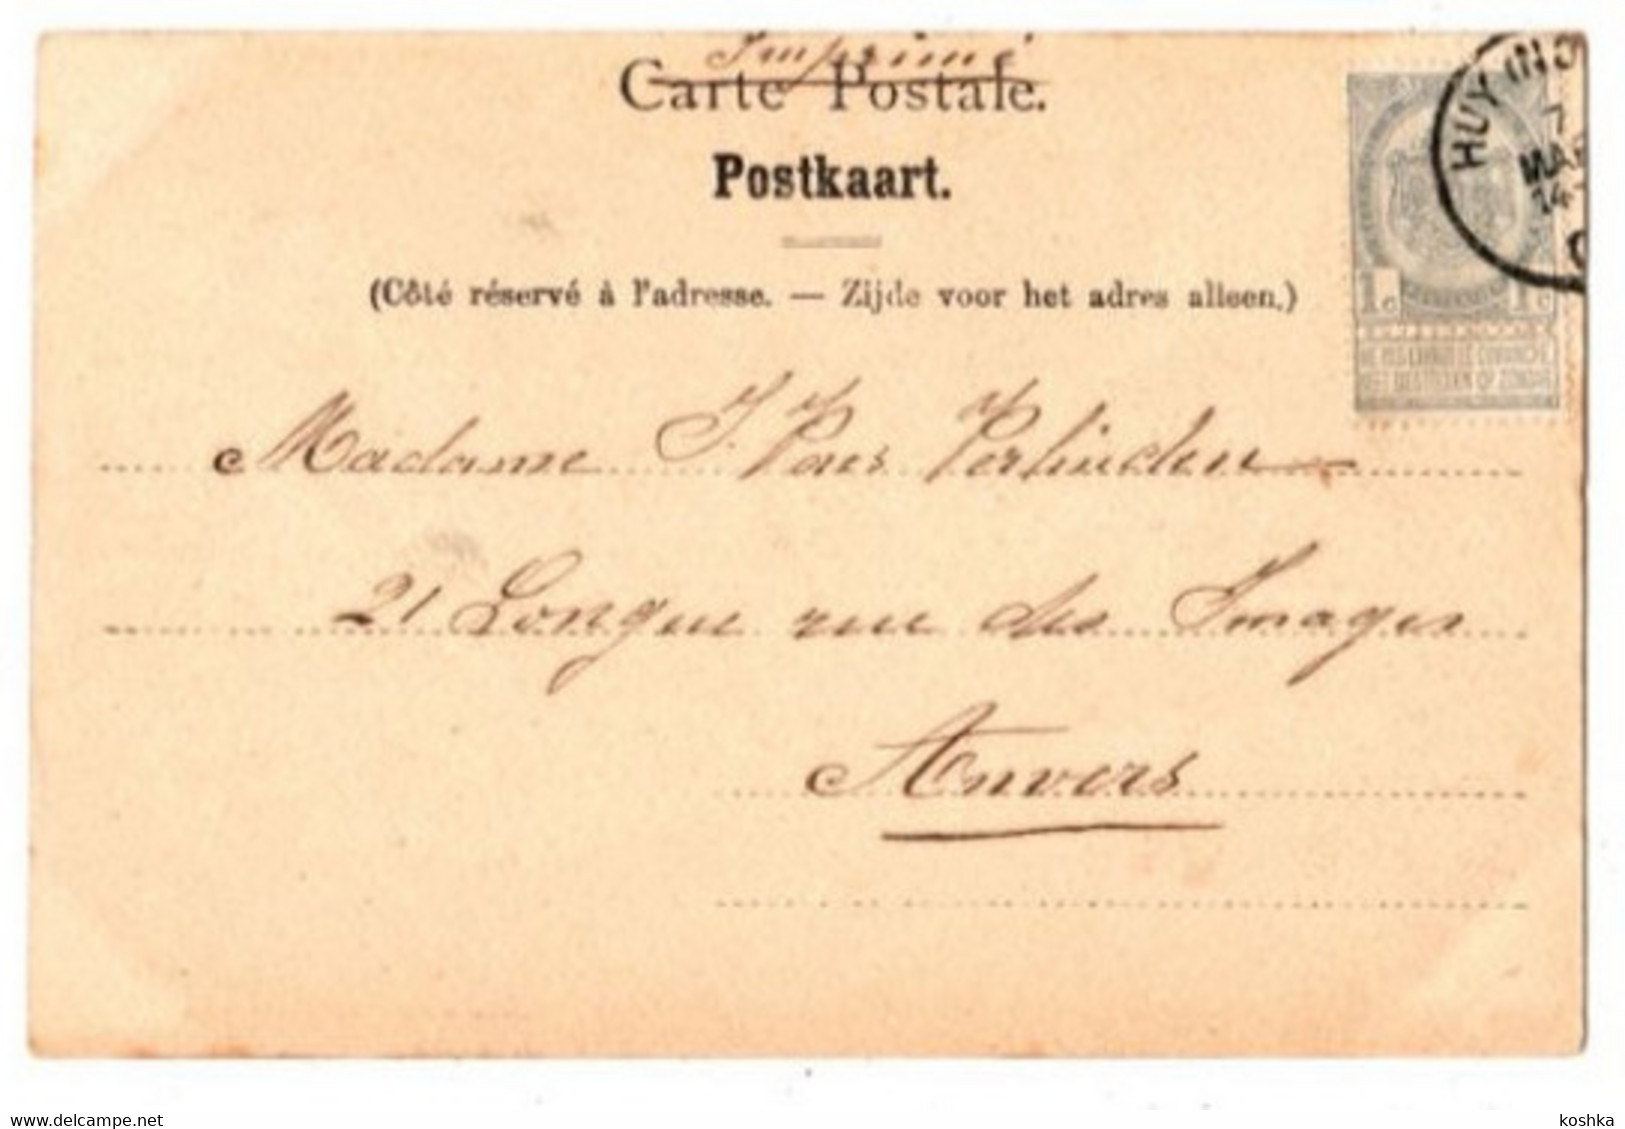 Imprimé
Carte Postale.
Postkaart.
(Côté réservé à l'adresse. — Zijde voor het adres alleen.)
HUY (NO
7
MA
14
1c 1c
NE PAS LIVRER LE DIMANCHE
NIET BESTELLEN OP ZONDAG
Madame J. Pars Verlinden
21 Longue rue des Images
Anvers
www.delcampe.net
koshka